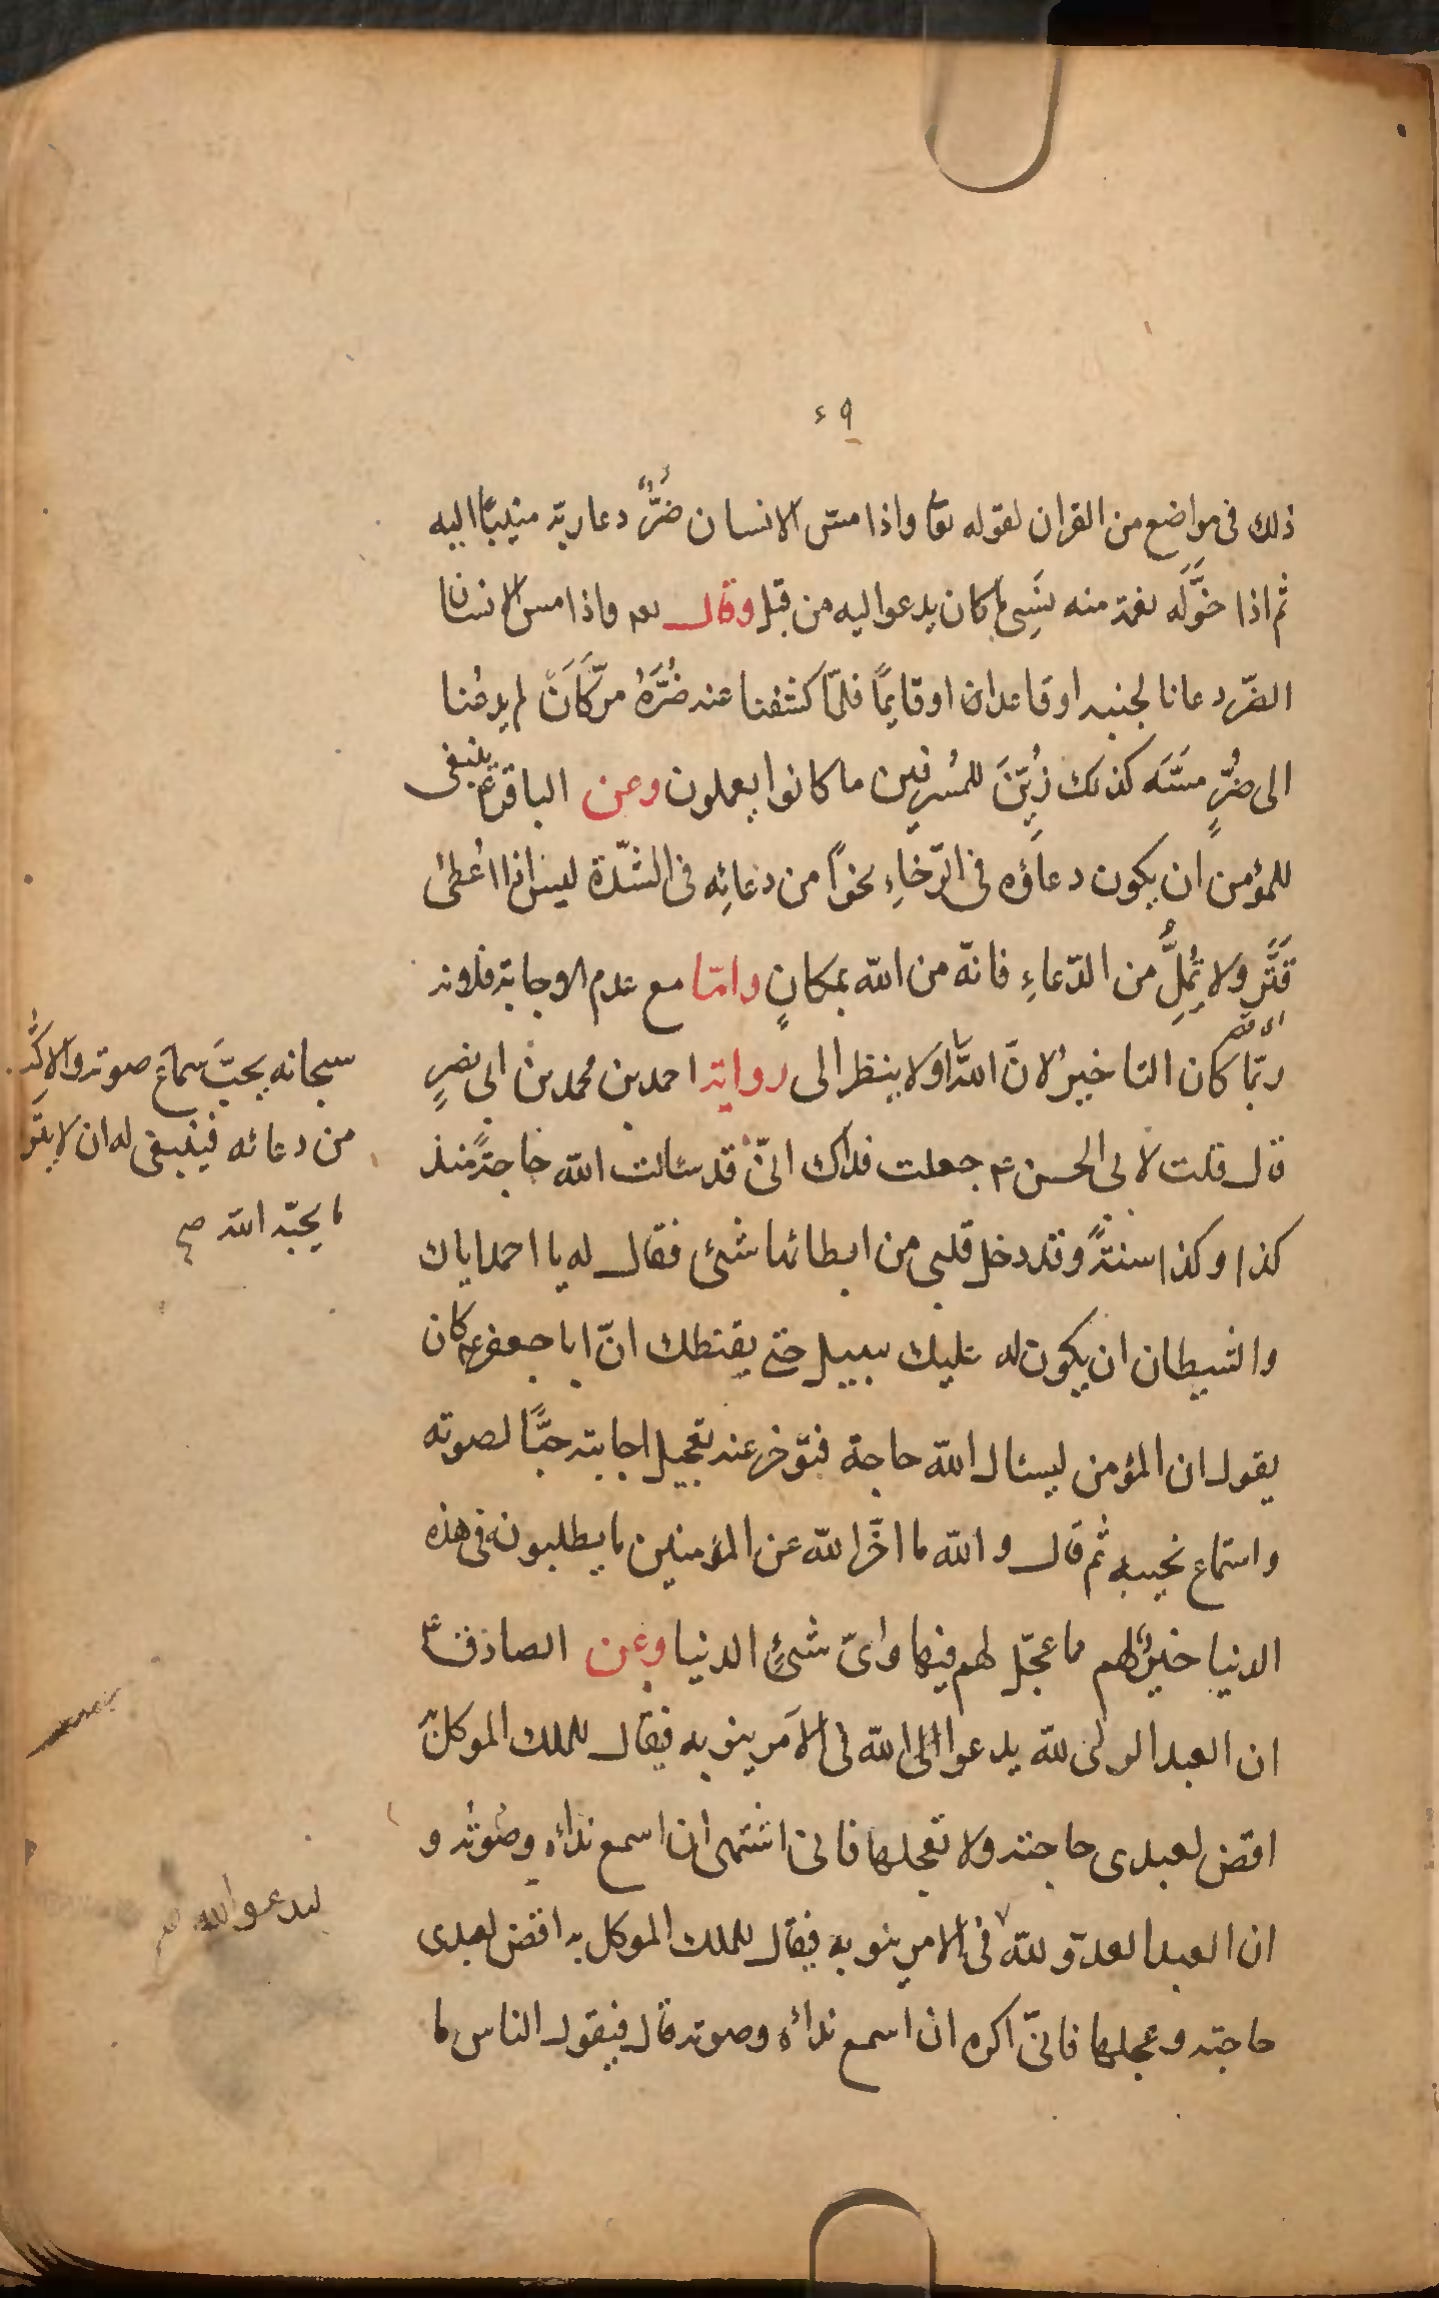 ٤٩
ذلك فى مواضع من القران لقوله تعا واذا مس الانسان ضُرٌّ دعا ربّه منيبًا اليه
ثم اذا خوَّلَه نعمة منه نَسِىَ ما كان يدعوا اليه من قبل وقال تعه واذا مس الانسان
الضّر دعانا لجنبه او قاعدا او قايمًا فلمّا كشفنا عنه ضُرَّهُ مرّ كَاَنْ لم يدعُنا
الى ضُرٍّ مسَّه كذلك زُيّنَ للمُسرفين ما كانوا يعملون وعن الباقر ع ينبغى
للمؤمن ان يكون دعاؤه فى الرّخاءِ نحوًا من دعائِه فى الشّدّة ليس اذا اُعطى
فَتَّرَ ولا تُمِلَّ من الدّعاءِ فانّه من الله بمكانٍ وامّا مع عدم الاجابة فلانه
ربّما كان التاخيرُ لانَّ اللّه اَوَلا ينظر الى رواية احمد بن محمد بن ابى نصرٍ
قال قلت لابى الحسن ع جعلت فداك انّى قد سئالت الله حاجةً منذ
كذا وكذا سنةً وقد دخل قلبى من ابطائها شئ فقال له يا احمد اياك
والشيطان ان يكون له عليك سبيل حتى يقنطك انّ ابا جعفر ع كان
يقول ان المؤمن ليسئال الله حاجة فتؤخر عنه تعجيل اجابته حبًّا لصوته
واستماع نحيبه ثم قال والله ما اخّر الله عن المؤمنين ما يطلبونه فى هذه
الدنيا خيرٌ لهم مما عجّل لهم فيها واىّ شئٍ الدنيا وعن الصادق ع
ان العبد الولى لله يدعوا الى الله فى الامر ينوبه فيقال للملك الموكل به
اقض لعبدى حاجته ولا تعجلها فانى اشتهى ان اسمع ندائه وصوته و
ان العبد العدو لله فى الامر ينوبه فيقال للملك الموكل به اقض لعبدى
حاجته وعجلها فانّى اكره ان اسمع ندائه وصوته قال فيقول الناس ما
سبحانه يحبّ سماع صوته والاكثار
من دعائه فينبغى له ان لا يترك
ما يحبّه الله صح
ليدعوا الله